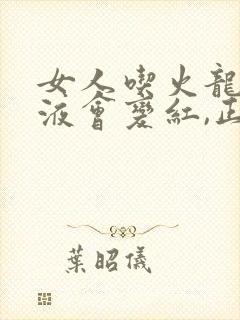 女人喫火龍
液會變紅,正
葉昭儀